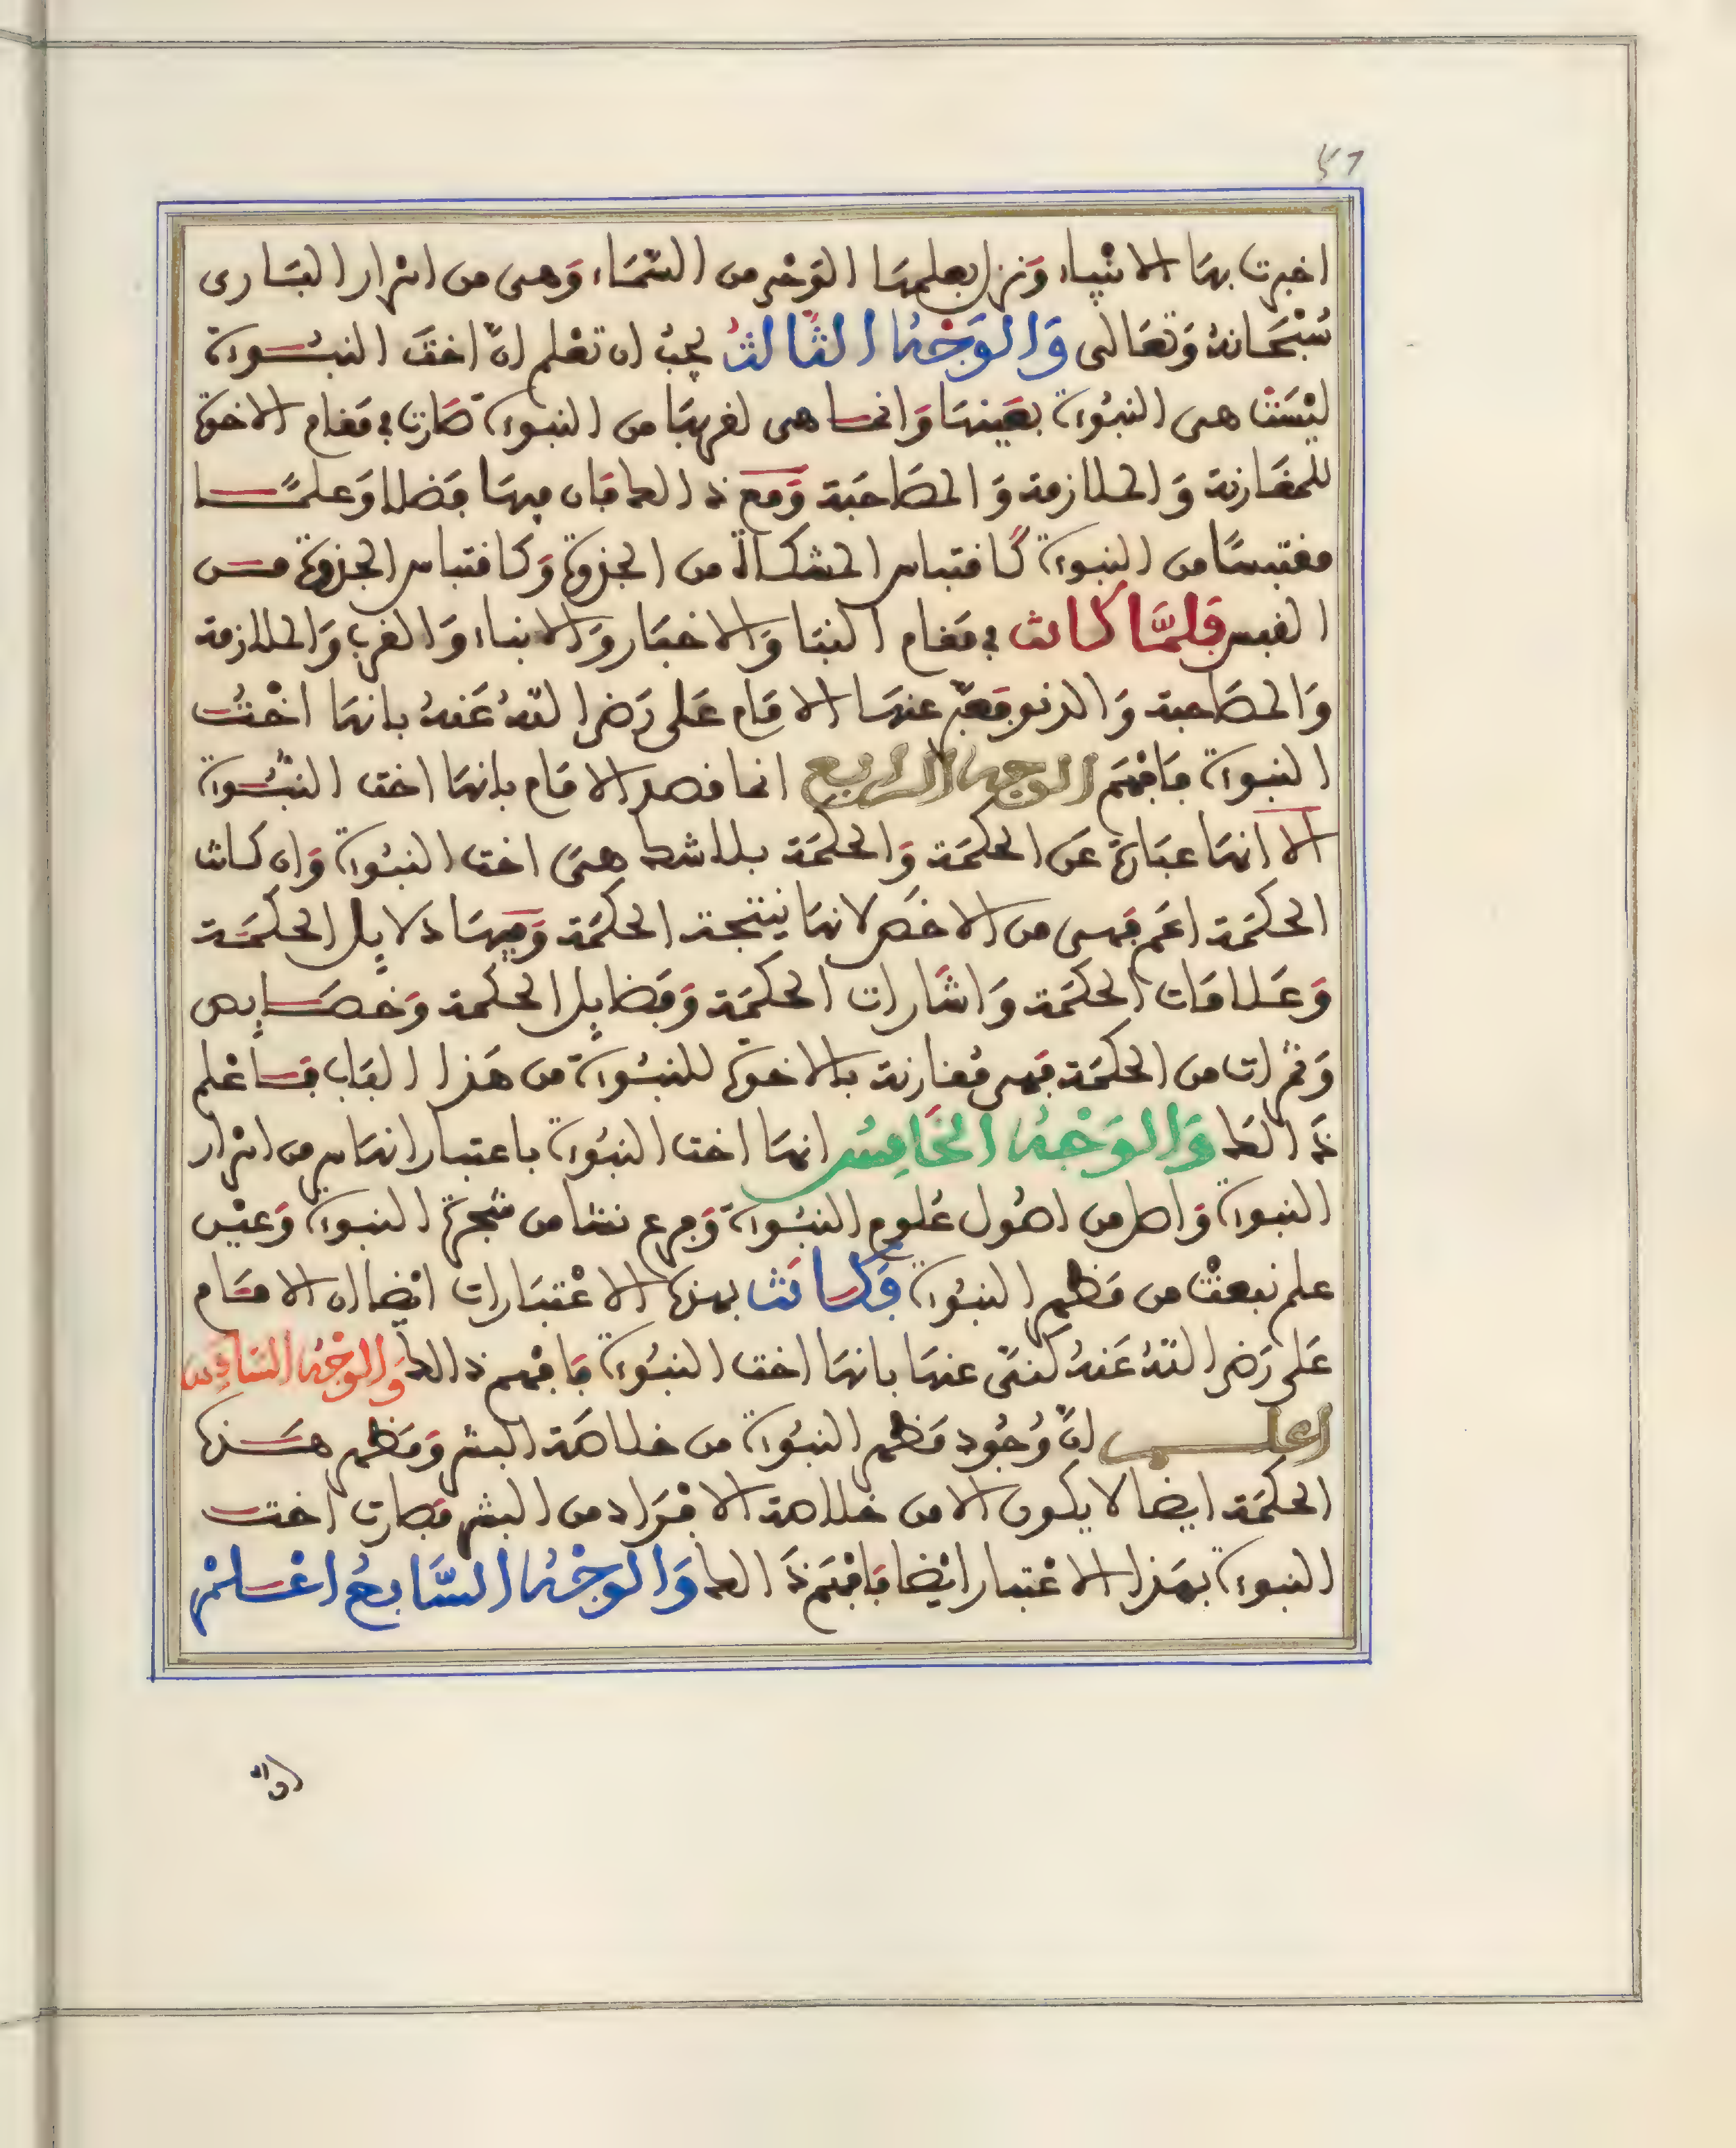 اخبرت بها الانبياء وَنزل بعلمها الوَحي من السَّمَاء وَهى من اسرار البَارى
سُبْحَانهُ وَتعَالى وَالوَجْهُ الثَّالثُ يجبُ ان تعْلم انّ اختَ النبُوة
ليْسَتْ هى النبُوة بعَينهَا وَانما هى لقربهَا من النبوة صَارت في مَقام الاخوة
للمقَارنة وَالملازمة وَالمصَاحَبة وَمَع ذالك فان فيهَا فضلا وَعلمًا
مقتبسًا من النبوة كَاقتباس المشكاة من الجذوة وَكاقتباس الجذوة من
القبس فَلمَّا كانت في مَقام النبَا وَالاخبَار وَالانباء وَالقرب وَالملازمة
وَالمصَاحبة وَالدنو فعَبّر عنهَا الامَام عَلى رَضي اللهُ عَنهُ بانهَا اخْتُ
النبوة فَافهَم الوجه الرابع انما قصد الامَام بانهَا اخت النبُّوة
الا انهَا عبَارة عَن الحكمَة وَالحكمَة بلا شك هىَ اخت النبُوة وَان كانت
الحكمَة اعَم فهى من الاخَص لانهَا نتيجة الحكمَة وَفيهَا دلايل الحكمَة
وَعَلامَات الحكمَة وَاشَارات الحكمَة وَفضَايل الحكمة وَخصَايص
وَثمرات من الحكمَة فهى مُقارنة بالاخوة للنبُوة من هَذا البَاب فَاعْلم
ذَالكَ وَالوَجْهُ الخَامِسُ انهَا اخت النبُوة باعتبار انهَا سر من اسرار
النبوة وَاصل من اصُول عُلوم النبُوة وَفرع نشا من شجرة النبوة وَعيْن
علم نبعتْ من مَظهر النبُوة فَكانَت بهذه الاعْتبَارات ايْضا ان الامَام
عَلى رَضي اللهُ عَنهُ كنىّ عنهَا بانهَا اخت النبُوة فَافهم ذالك وَالوَجْهُ السَّادِس
اعلم انّ وُجُود مَظهر النبُوة من خلاصَة البشر وَمَظهر هَذه
الحكمَة ايضا لا يكون الا من خلاصة الافرَاد من البشر فصَارت اخت
النبوة بهَذا الاعْتبار ايْضا فَافهَم ذَالك وَالوَجْهُ السَّابعُ اعْلمْ
انّ